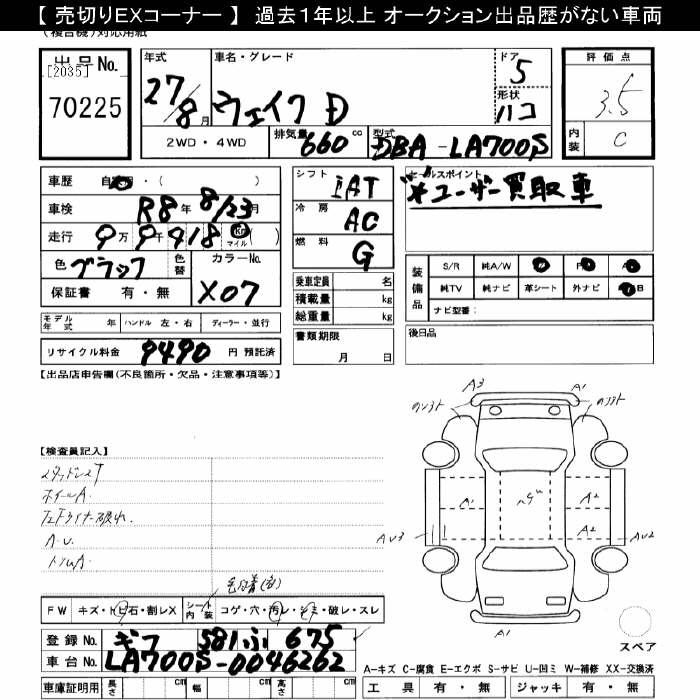 【 売切りEXコーナー 】 過去1年以上 オークション出品歴がない車両
(複合機)対応用紙
出品No.
[2035]
70225
年式
27/8月
車名・グレード
ウェイク D
ドア
5
形状
ハコ
2WD・4WD
排気量 660 cc
型式 DBA-LA700S
評価点
3.5
内装 C
車歴 自家用・( )
車検 R8年 8/23月
走行 9万9千918 km マイル ( )
色 ブラック 色替
カラーNo. X07
保証書 有・無
シフト IAT
冷房 AC
燃料 G
乗車定員 名
積載量 kg
総重量 kg
セールスポイント
※ユーザー買取車
装備品
S/R 純A/W
純TV 純ナビ 革シート 外ナビ
ナビ型番:
モデル年式 年 ハンドル 左・右 ディーラー・並行
リサイクル料金 9490 円 預託済
書類期限 月 日
後日品
【出品店申告欄(不良箇所・欠品・注意事項等)】
【検査員記入】
ホイールA.
左Fライナー破れ.
A.U.
A3
A1
A1
A2
A2
AU3
AU2
A1
FW キズ・トビ石・割レX
シート内装 コゲ・穴・汚レ・シミ・破レ・スレ
登録No. ギフ 581 ふ 675
車台No. LA700S-0046262
車庫証明用 長さ cm 幅 cm 高さ cm
スペア
A-キズ C-腐食 E-エクボ S-サビ U-凹ミ W-補修 XX-交換済
工具 有・無 ジャッキ 有・無